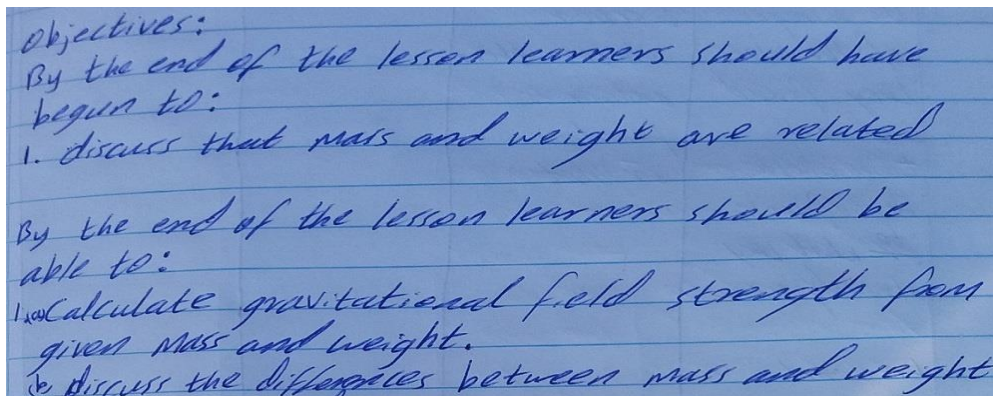 Objectives:
By the end of the lesson learners should have
begun to:
1. discuss that mass and weight are related
By the end of the lesson learners should be
able to:
1.(a) Calculate gravitational field strength from
given mass and weight.
(b) Discuss the differences between mass and weight